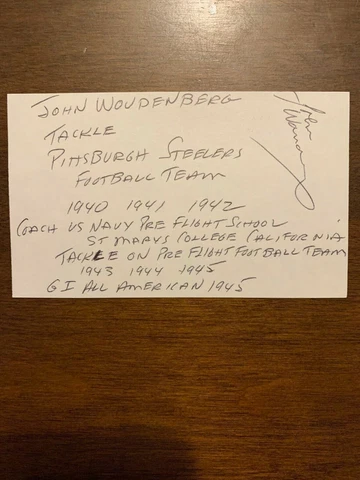 JOHN WOUDENBERG
TACKLE
PITTSBURGH STEELERS
FOOTBALL TEAM
1940 1941 1942
COACH US NAVY PRE FLIGHT SCHOOL
ST MARYS COLLEGE CALIFORNIA
TACKLE ON PRE FLIGHT FOOTBALL TEAM
1943 1944 1945
GI ALL AMERICAN 1945